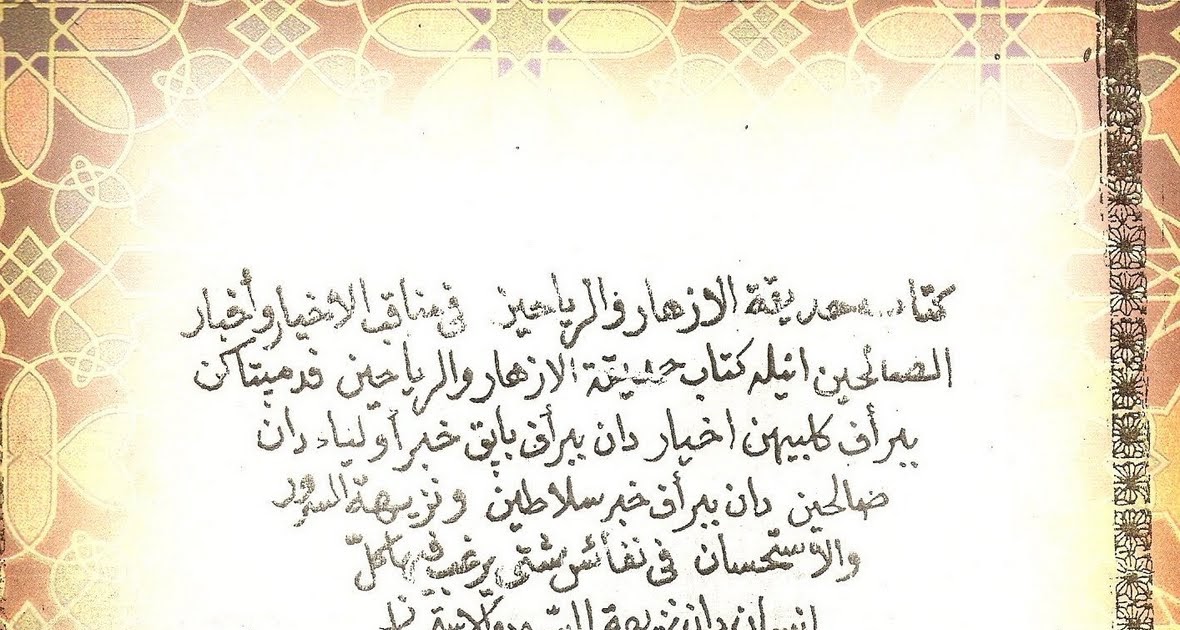 كتاب حديقة الازهار والرياحين في مناقب الاخيار وأخبار
الصالحين انيله كتاب حديقة الازهار والرياحين فدميتاكن
ببرأف كلبيهن اخيار دان ببرأف باپق خبر أولياء دان
صالحين دان ببرأف خبر سلاطين ونزيهة السرور
والاستحسان في نفائس شتى يرغب فيها كل
انسان دان نزيهة